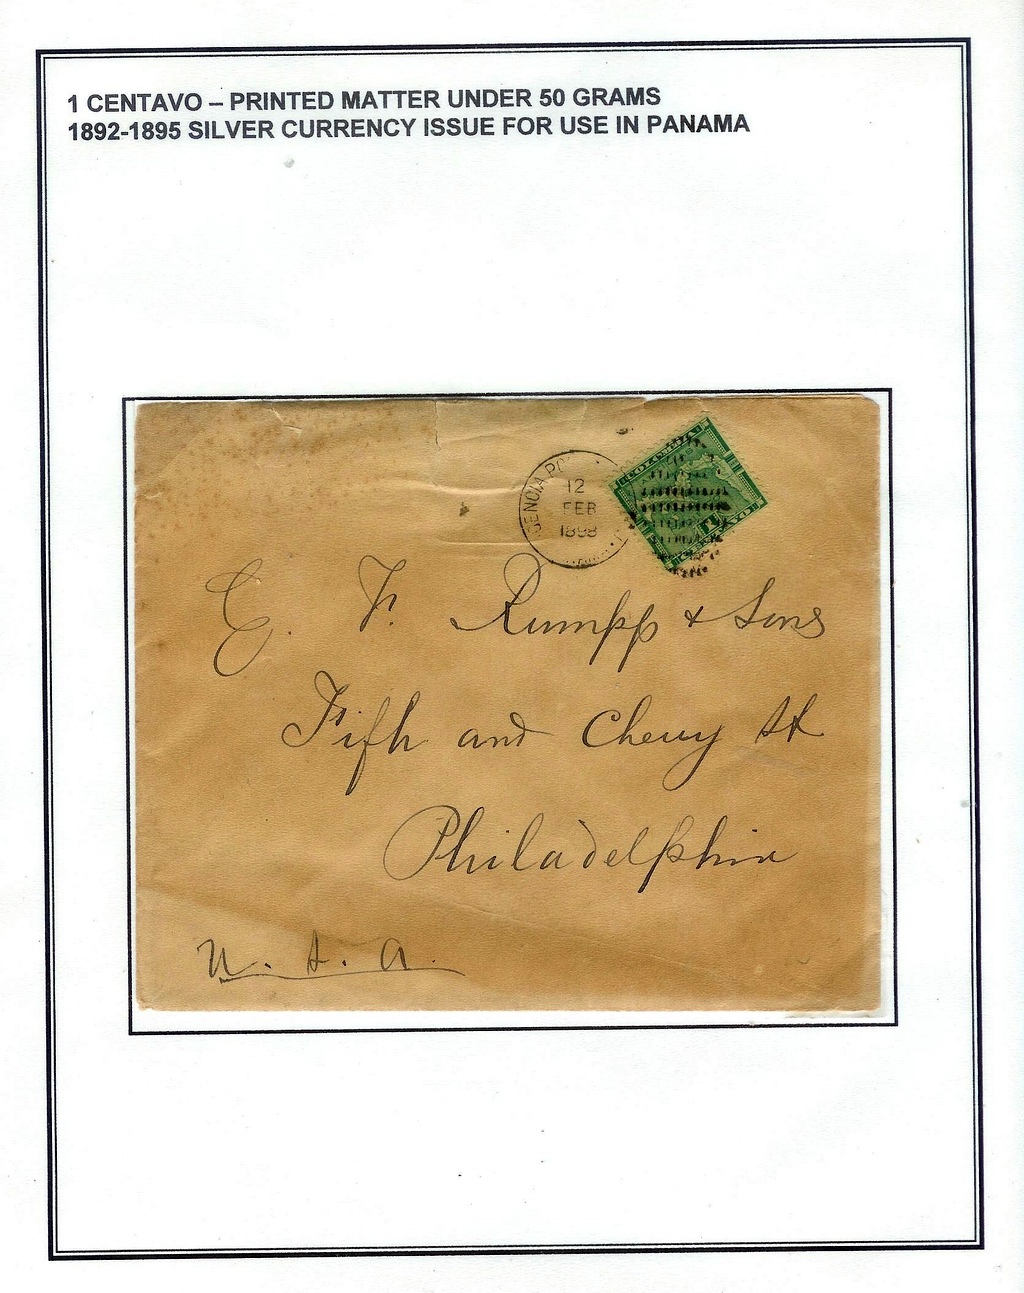 1 CENTAVO – PRINTED MATTER UNDER 50 GRAMS
1892-1895 SILVER CURRENCY ISSUE FOR USE IN PANAMA
GENCIA PO
12
FEB
1898
COLOMBIA
1
E. F. Rumpp & Sons
Fifth and Cherry St
Philadelphia
U. S. A.